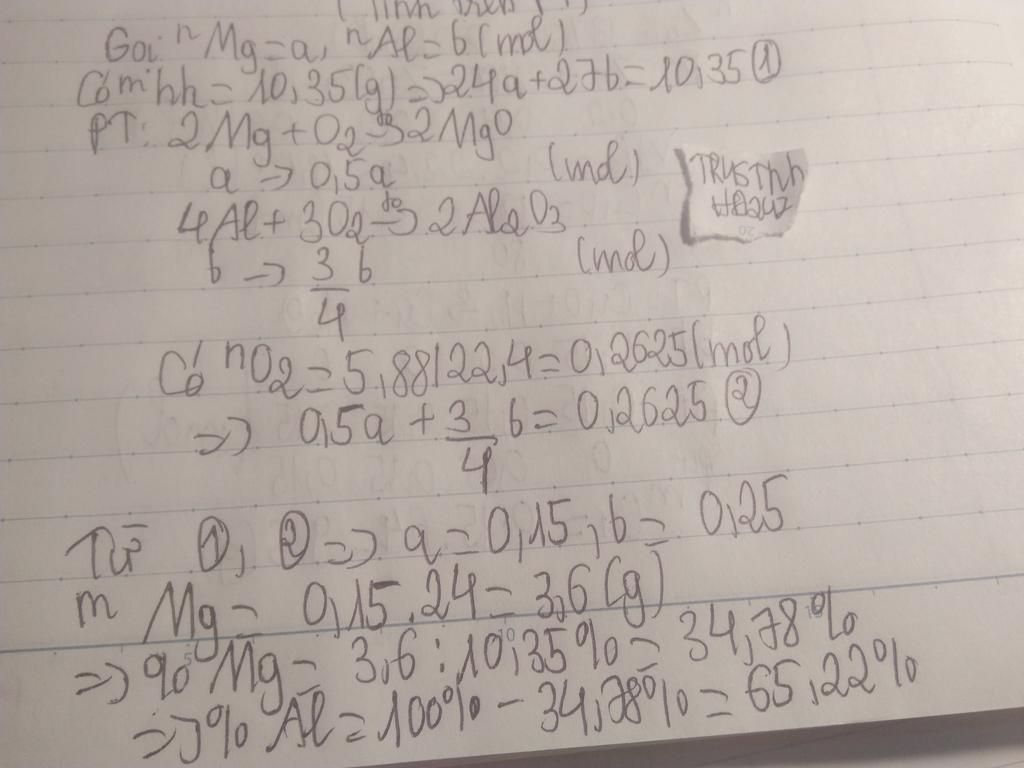 (Tính theo
Gọi nMg=a, nAl=b(mol)
Có mhh=10,35(g)=>24a+27b=10,35①
PT: 2Mg+O2 to→ 2MgO
a → 0,5a (mol)
TRUSThh
4Al+3O2 to→ 2Al2O3
b → 3/4 b (mol)
Có nO2=5,88/22,4=0,2625(mol)
=> 0,5a + 3/4 b=0,2625②
Từ ①, ②=> a=0,15, b=0,25
mMg=0,15.24=3,6(g)
=>%Mg=3,6:10,35%=34,78%
=>%Al=100%-34,78%=65,22%